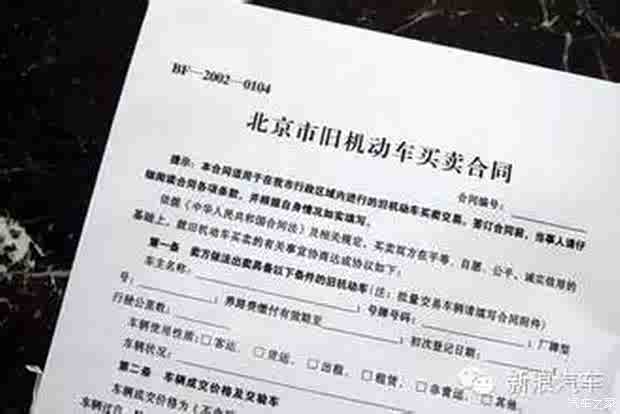 BF—2002—0104
北京市旧机动车买卖合同
合同编号:
提示:本合同适用于在我市行政区域内进行的旧机动车买卖交易。签订合同前,当事人请仔
细阅读合同各项条款,并根据自身情况如实填写。
依据《中华人民共和国合同法》及相关规定,买卖双方在平等、自愿、公平、诚实信用的
基础上,就旧机动车买卖的有关事宜协商达成协议如下:
第一条 卖方依法出卖具备以下条件的旧机动车(注:批量交易车辆请填写合同附件)
车主名称: ;号牌号码: ;厂牌型
号: ;养路费缴付有效期至 ;初次登记日期:
行驶公里数:
车辆使用性质:□客运、□货运、□出租、□租赁、□非营运、□其他
车辆状况:
第二条 车辆成交价格及交验车
车辆成交价格为(不含
新浪汽车
汽车之家